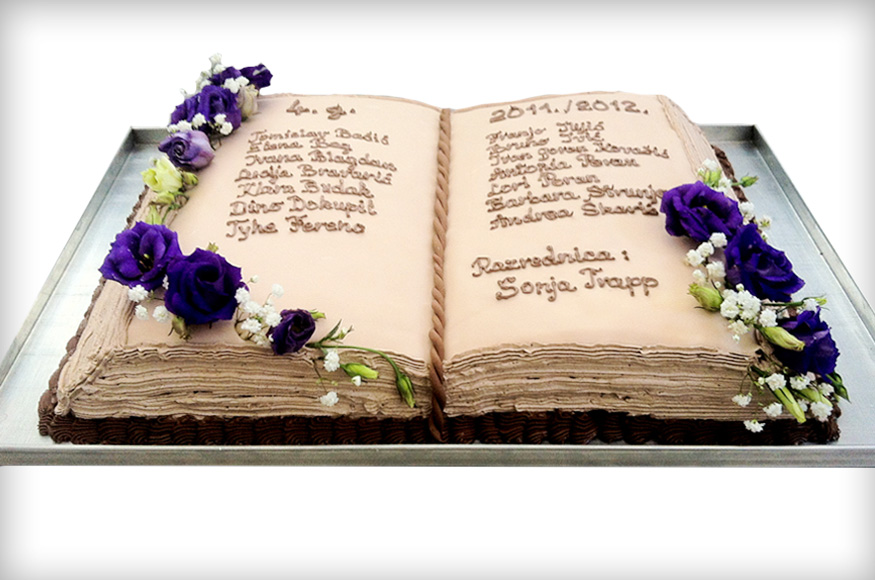 4. g.
Tomislav Bačić
Elena Bag
Ivana Blagdan
Lidija Bravarić
Klara Budak
Dino Dokupil
Tyke Ferenc
2011./2012.
Franjo Ilijić
Bruno Ivić
Ivan Zoran Kovačić
Antonia Peran
Lori Peran
Barbara Strunje
Andrea Skarić
Razrednica :
Sonja Trapp